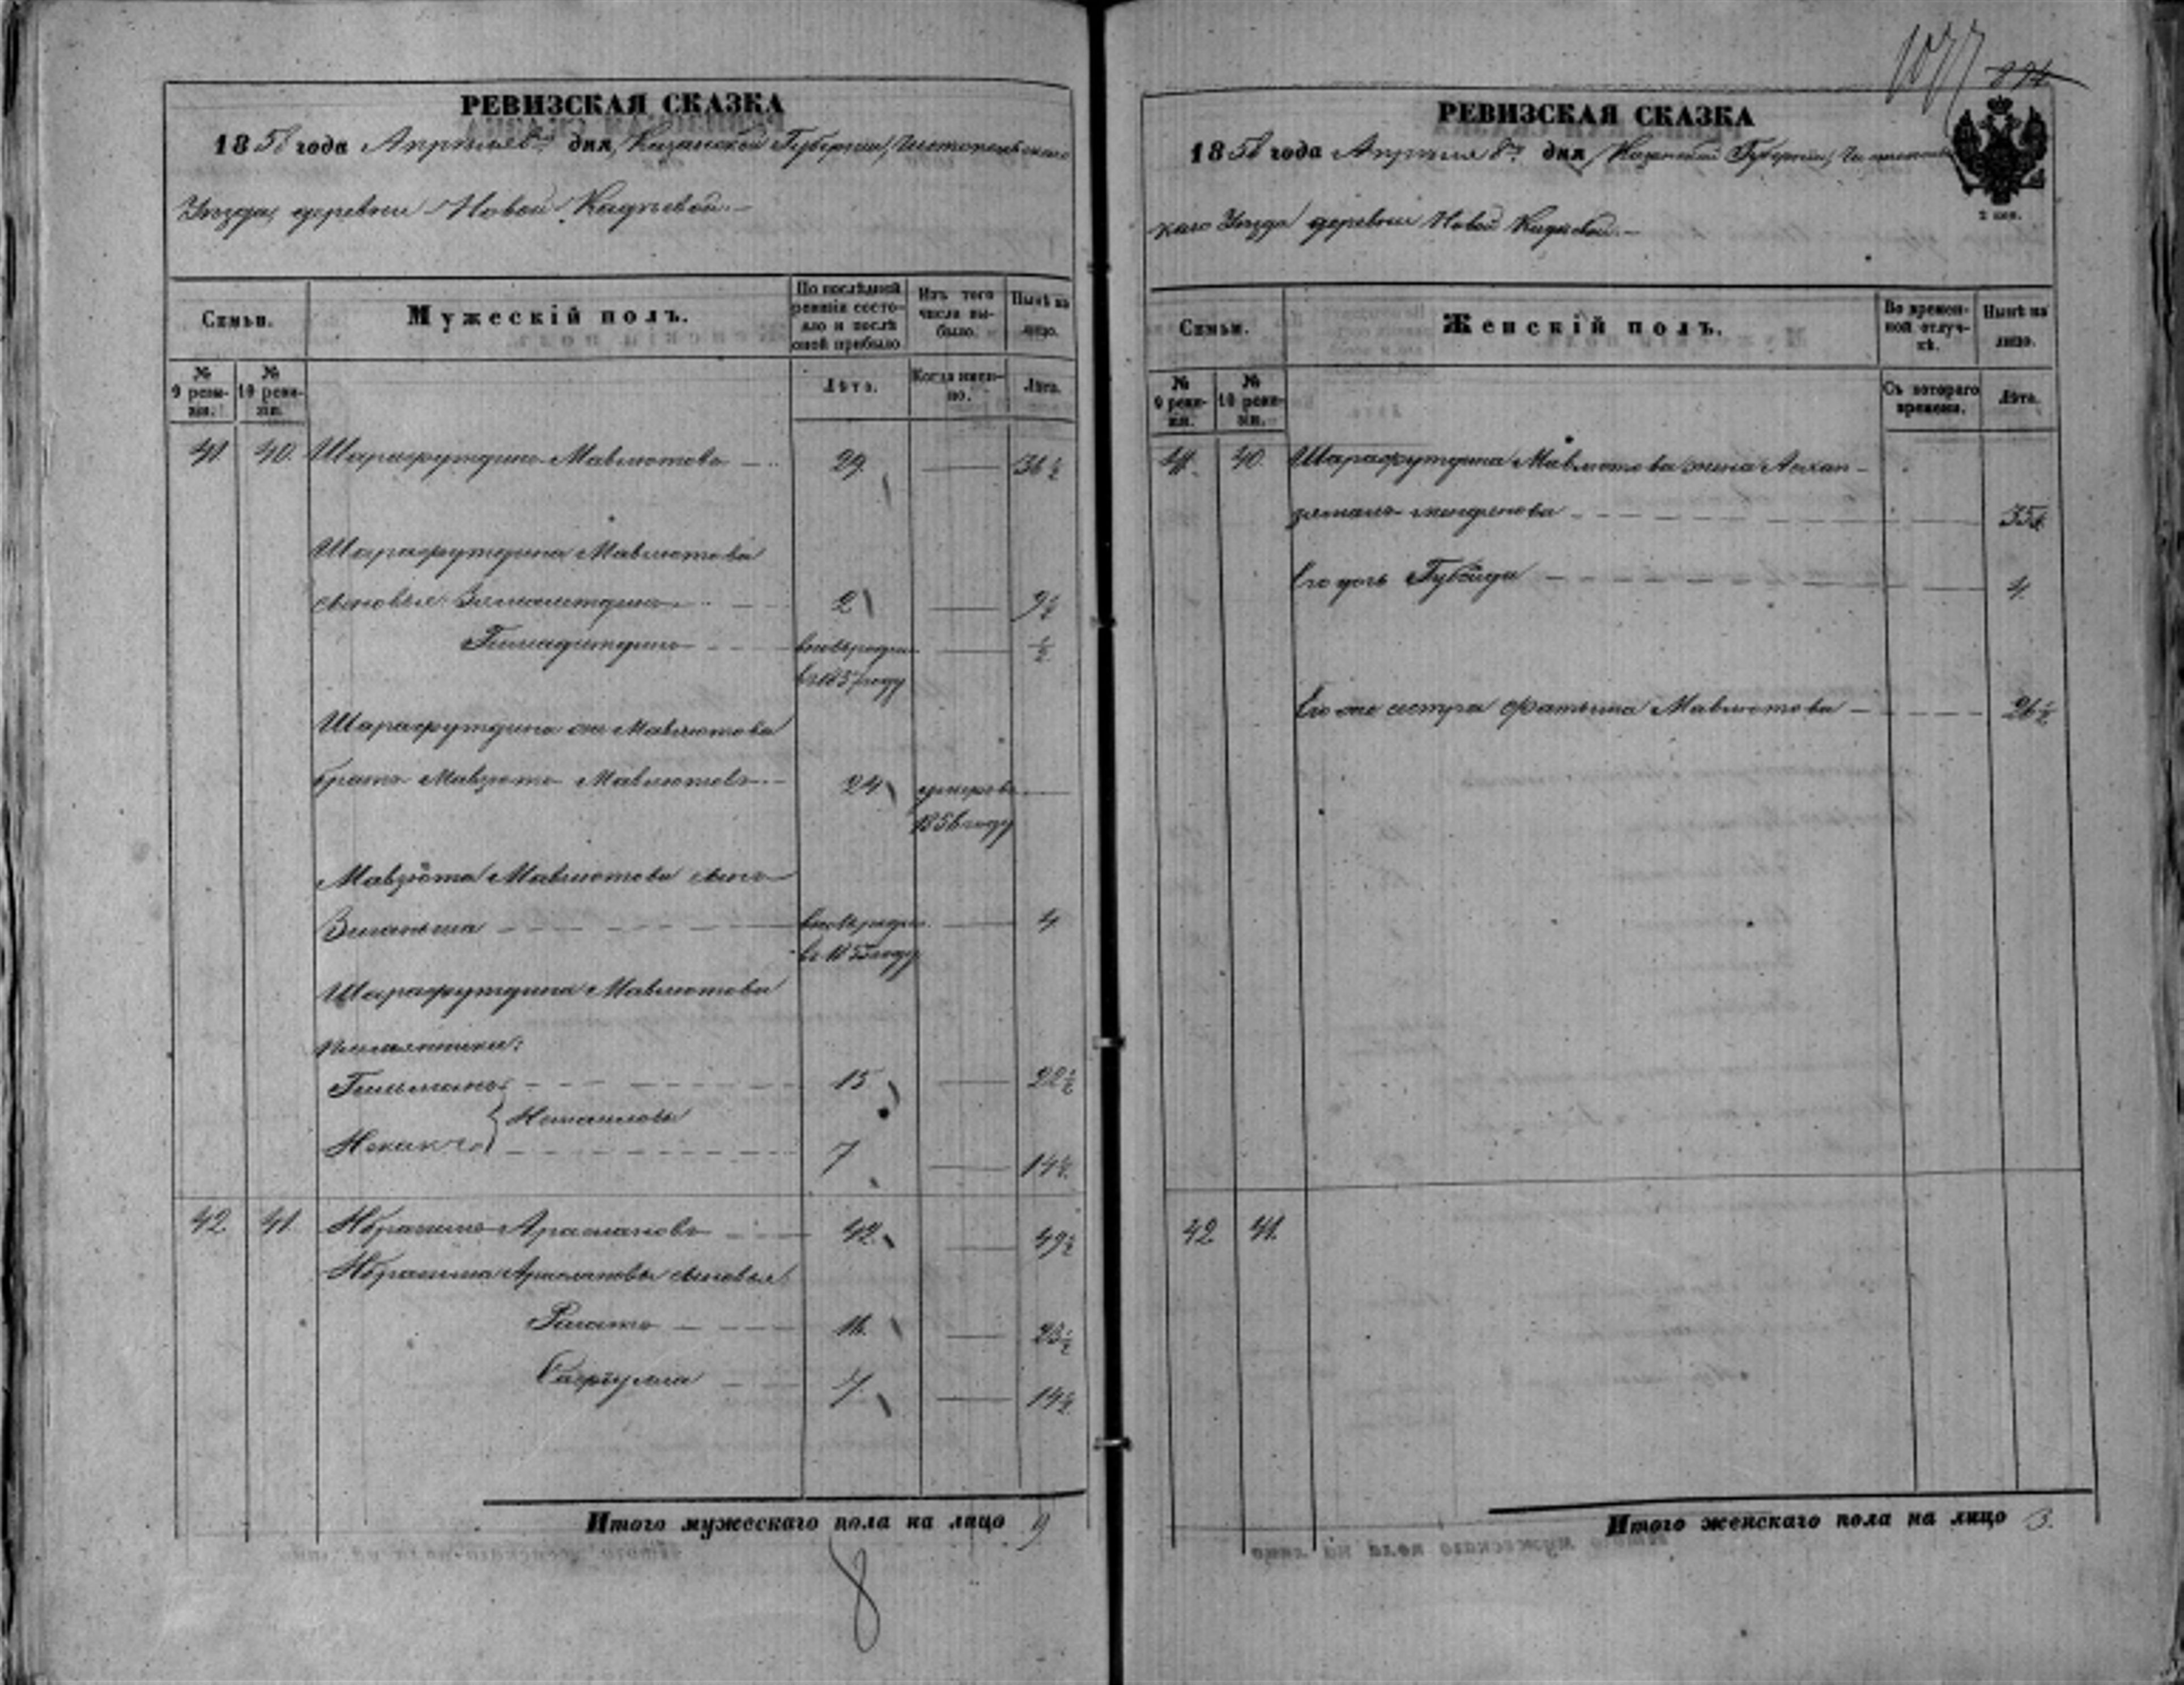 1077
РЕВИЗСКАЯ СКАЗКА
1858 года Апреля 8го дня, Казанской Губернии, Чистопольскаго
Уезда, деревни Новой Кадѣевой.
Семьи.
Мужескій полъ.
По послѣдней ревизіи состояло и послѣ оной прибыло
Изъ того числа выбыло.
Нынѣ на лицо.
№ 9 ревизіи.
№ 10 ревизіи.
Лѣта.
Когда именно.
Лѣта.
41 40. Шарафутдинъ Мавлютовъ 29. 36½
Шарафутдина Мавлютова
сыновья 2 9½
вновь родил. ½
въ 1857 году
Шарафутдина же Мавлютова
братъ Мавлютовъ 24 умеръ въ
1856 году
Мавлютова сынъ
Зиганьша вновь родил. 4
въ году
Шарафутдина Мавлютова
племянники:
15 22½
7 14½
42 41. Ибрагимъ Арслановъ 42. 49½
Ибрагима Арсланова сыновья
16. 23½
7 14½
Итого мужескаго пола на лицо 9
8
РЕВИЗСКАЯ СКАЗКА
1858 года Апреля 8го дня, Казанской Губернии, Чистопольс
каго Уезда деревни Новой Кадѣевой.
2 коп.
Семьи.
Женскій полъ.
Во временной отлучкѣ.
Нынѣ на лицо.
№ 9 ревизіи.
№ 10 ревизіи.
Съ котораго времени.
Лѣта.
41. 40. Шарафутдина Мавлютова жена
35
Его дочь 4.
Его же сестра Фатыма Мавлютова 26½
42 41.
Итого женскаго пола на лицо 3.